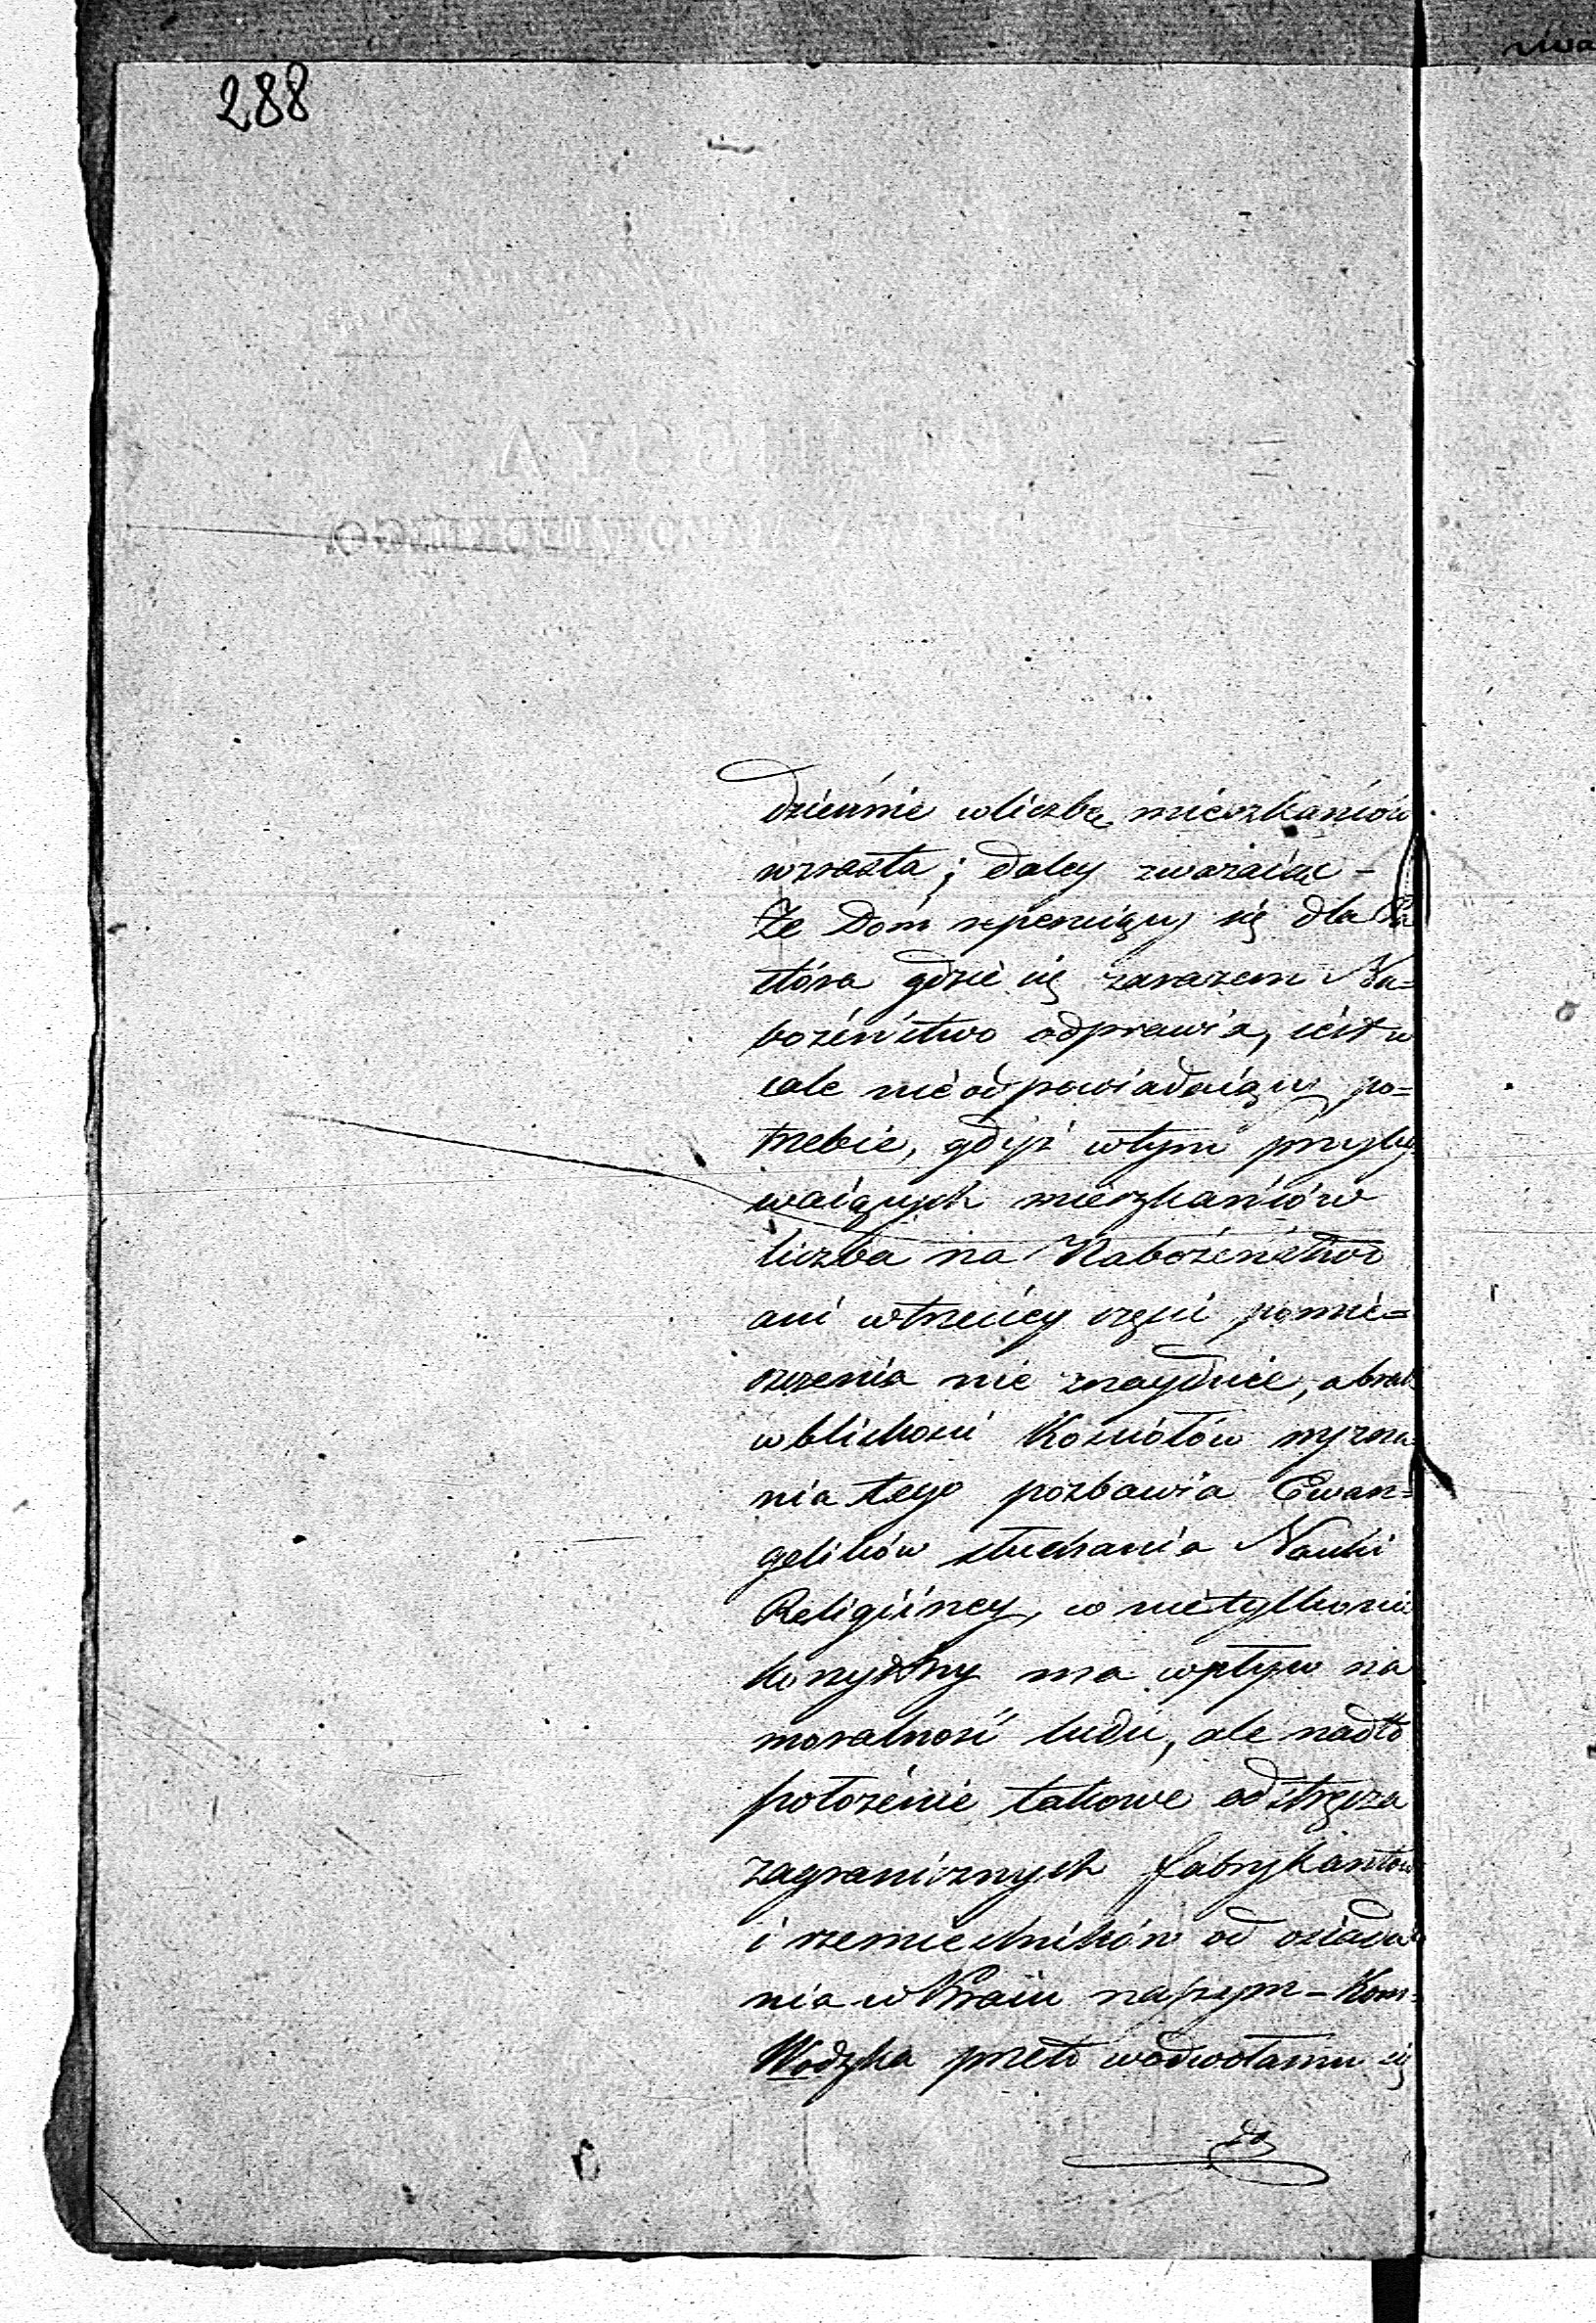 288
dziennie w liczbę mieszkańców
wzrasta; daley zważaiąc -
Że Dom najmuiący się dla Pa
stóra gdzie się zarazem Na=
bożeństwo odprawia, iest w
cale nieodpowiadaiącą po=
trzebie, gdyż w tym przyby
waiących mieszkańców
liczba na Nabożeństwo
ani w trzeciey części pomie=
szczenia nie znayduie, a brak
w bliskości Kościołów wyzna
nia tego pozbawia Ewan=
gelików słuchania Nauki
Religiiney, co nietylko nie
korzystny ma wpływ na
moralność ludu, ale nadto
położenie takowe odstręcza
zagranicznych fabrykantów
i rzemieślników od osiada
nia w Kraiu naszym - Kom=
Wodzka przeto w odwołaniu się
do